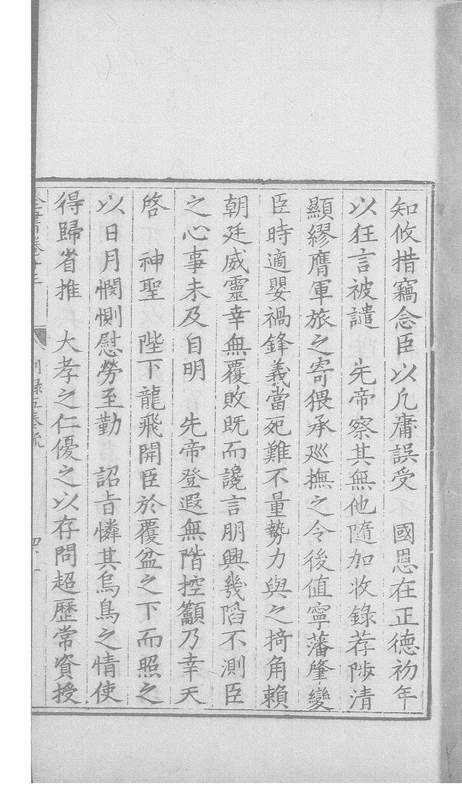 知攸措竊念臣以凡庸誤受　國恩在正德初年
以狂言被譴　先帝察其無他隨加收錄荐陟清
顯繆膺軍旅之寄猥承巡撫之令後值寧藩肇變
臣時適嬰禍鋒義當死難不量勢力與之掎角賴
朝廷威靈幸無覆敗既而讒言朋興幾陷不測臣
之心事未及自明　先帝登遐無階控籲乃幸天
啓　神聖　陛下龍飛開臣於覆盆之下而照之
以日月憫惻慰勞至勤　詔旨憐其烏鳥之情使
得歸省推　大孝之仁優之以存問超歷常資授